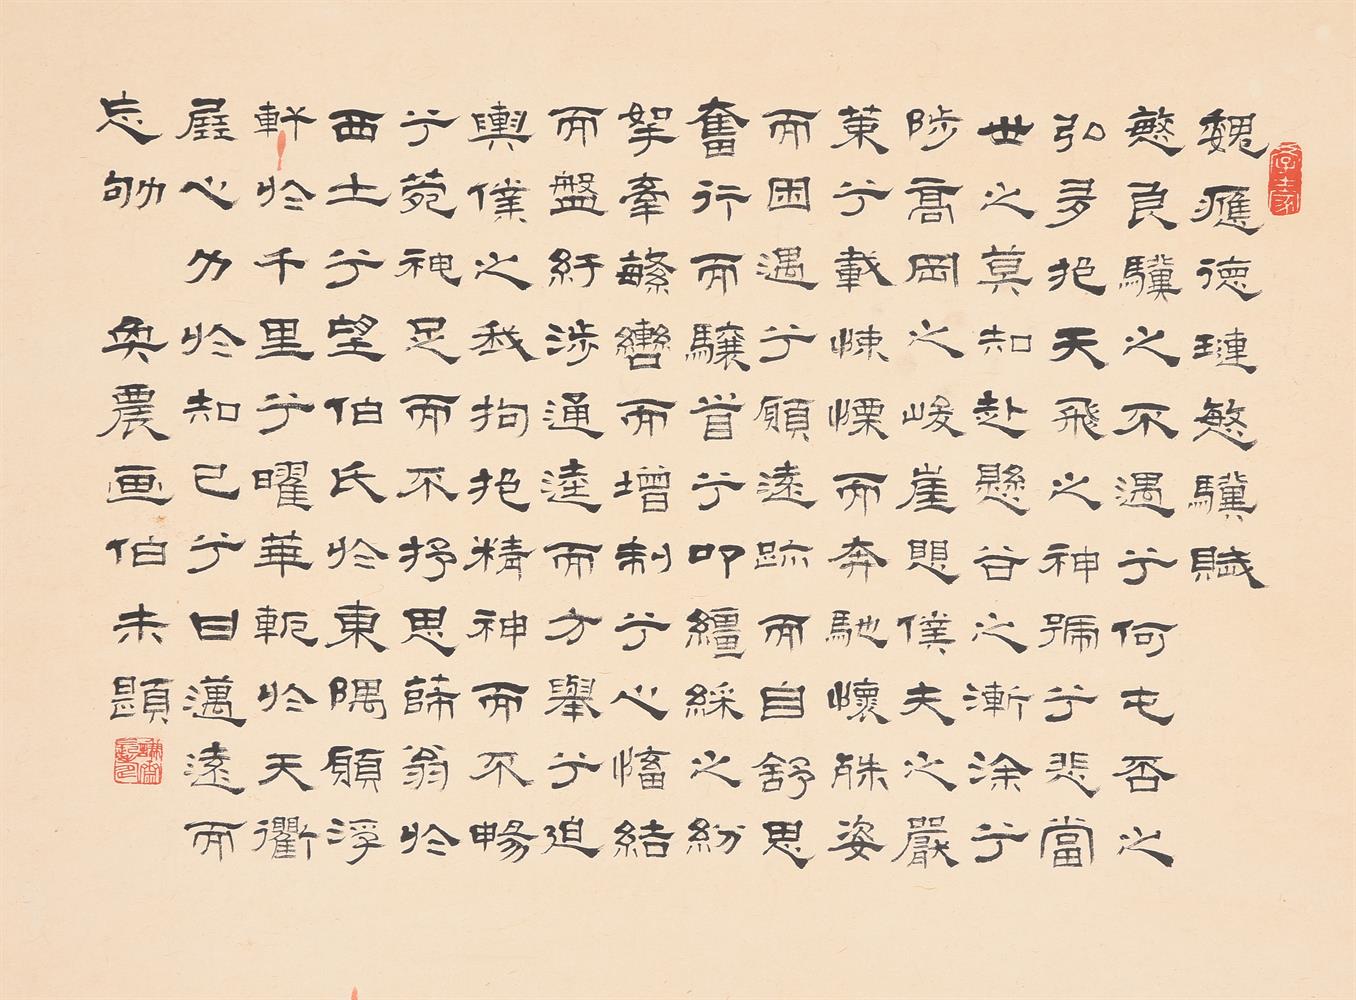 魏應德璉慜驥賦
慜良驥之不遇兮何屯否之
弘多抱天飛之神號兮悲當
世之莫知赴懸谷之漸涂兮
陟高岡之峻崖愳僕夫之嚴
策兮載悚慄而奔馳懷殊姿
而困遇兮願遠跡而自舒思
奮行而驤首兮叩繮綵之紛
挐牽繁轡而增制兮心慉結
而盤紆涉通逵而方舉兮迫
輿僕之我拘抱精神而不暢
兮菀神足而不抒思薛翁於
西土兮望伯氏於東隅願浮
軒於千里兮曜華軛於天衢
展心力於知己兮甘邁遠而
忘劬 奐農画伯未題